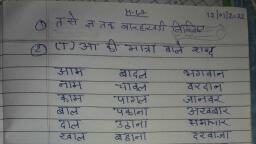 H.W 12/01/2022
① त से न तक बारहखड़ी लिखिए
② (ा) आ की मात्रा वाले शब्द
आम बादल भगवान
नाम चावल वरदान
काम पागल जानवर
बाल पकाना अखबार
दाल उठाना समाचार
खाल बहाना दरवाजा